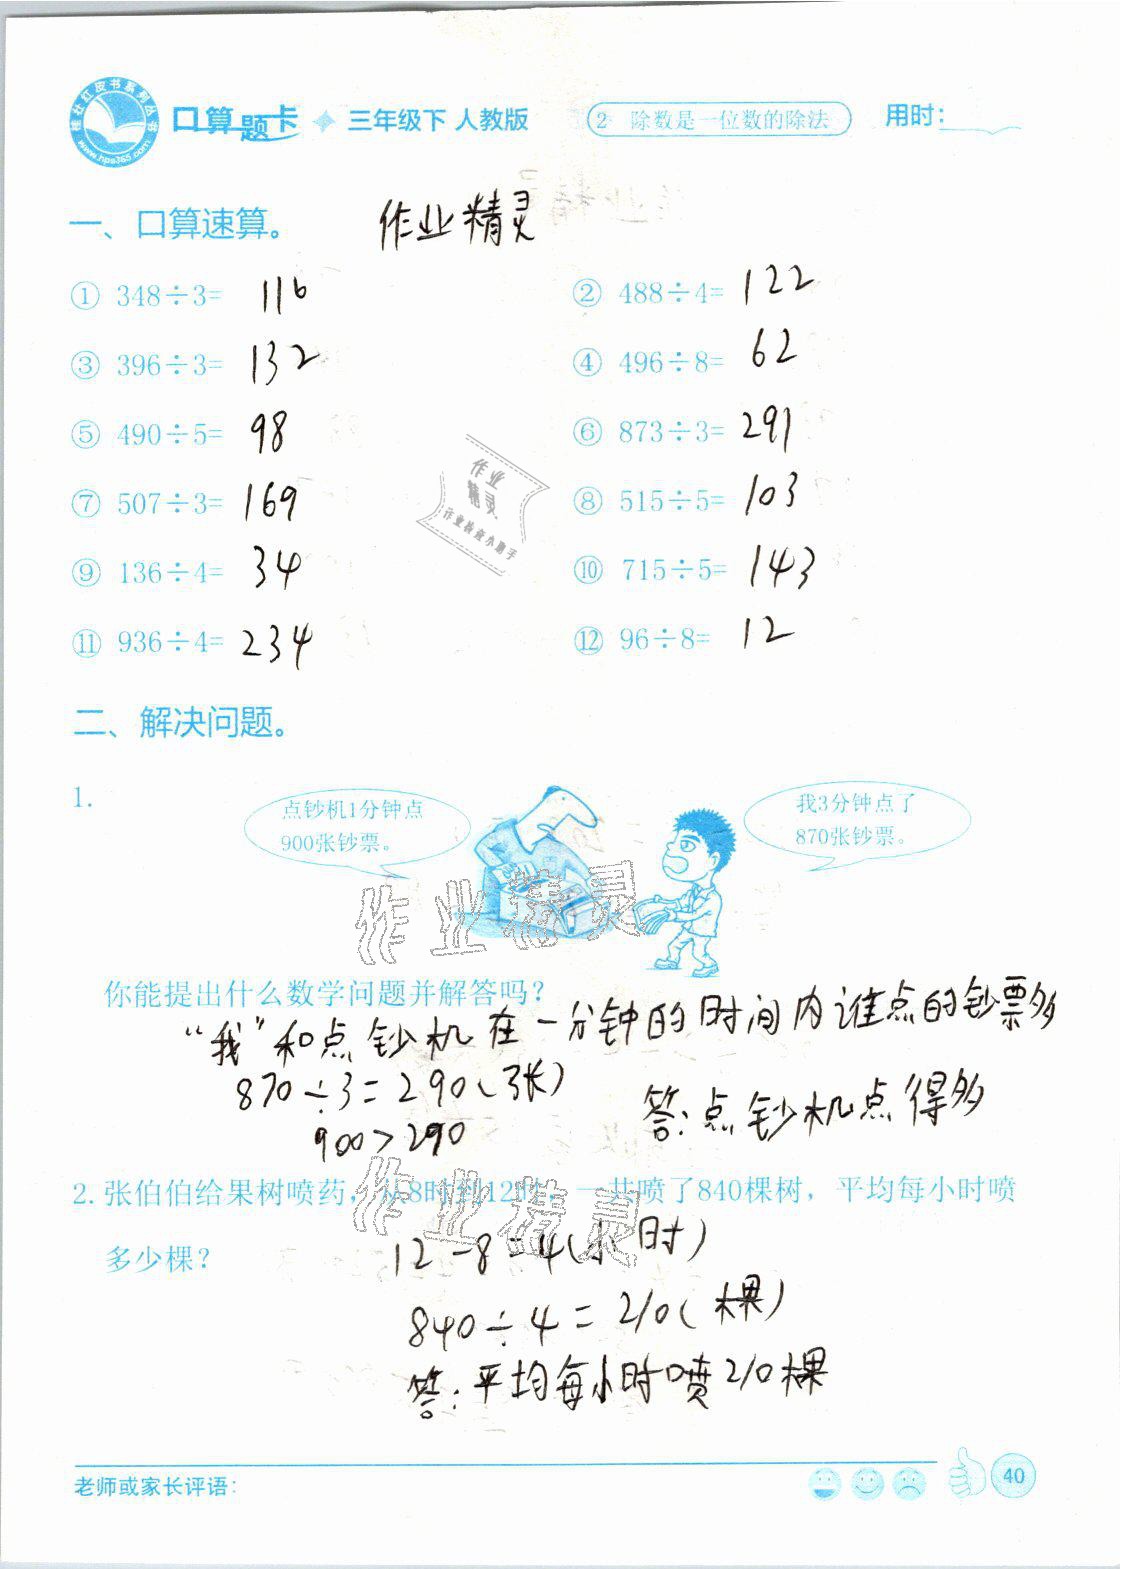 桂壮红皮书系列丛书
www.hps365.com
口算题卡 三年级下 人教版 2 除数是一位数的除法 用时:
一、口算速算。 作业精灵
① 348÷3= 116 ② 488÷4= 122
③ 396÷3= 132 ④ 496÷8= 62
⑤ 490÷5= 98 ⑥ 873÷3= 291
⑦ 507÷3= 169 ⑧ 515÷5= 103
作业
精灵
⑨ 136÷4= 34 ⑩ 715÷5= 143
⑪ 936÷4= 234 ⑫ 96÷8= 12
二、解决问题。
1.
点钞机1分钟点
900张钞票。
我3分钟点了
870张钞票。
作业精灵
你能提出什么数学问题并解答吗？
“我”和点钞机在一分钟的时间内谁点的钞票多
870÷3=290(张)
900>290
答:点钞机点得多
2. 张伯伯给果树喷药，从8时到12时，一共喷了840棵树，平均每小时喷
多少棵？
作业精灵
12-8=4(小时)
840÷4=210(棵)
答:平均每小时喷210棵
老师或家长评语:
40